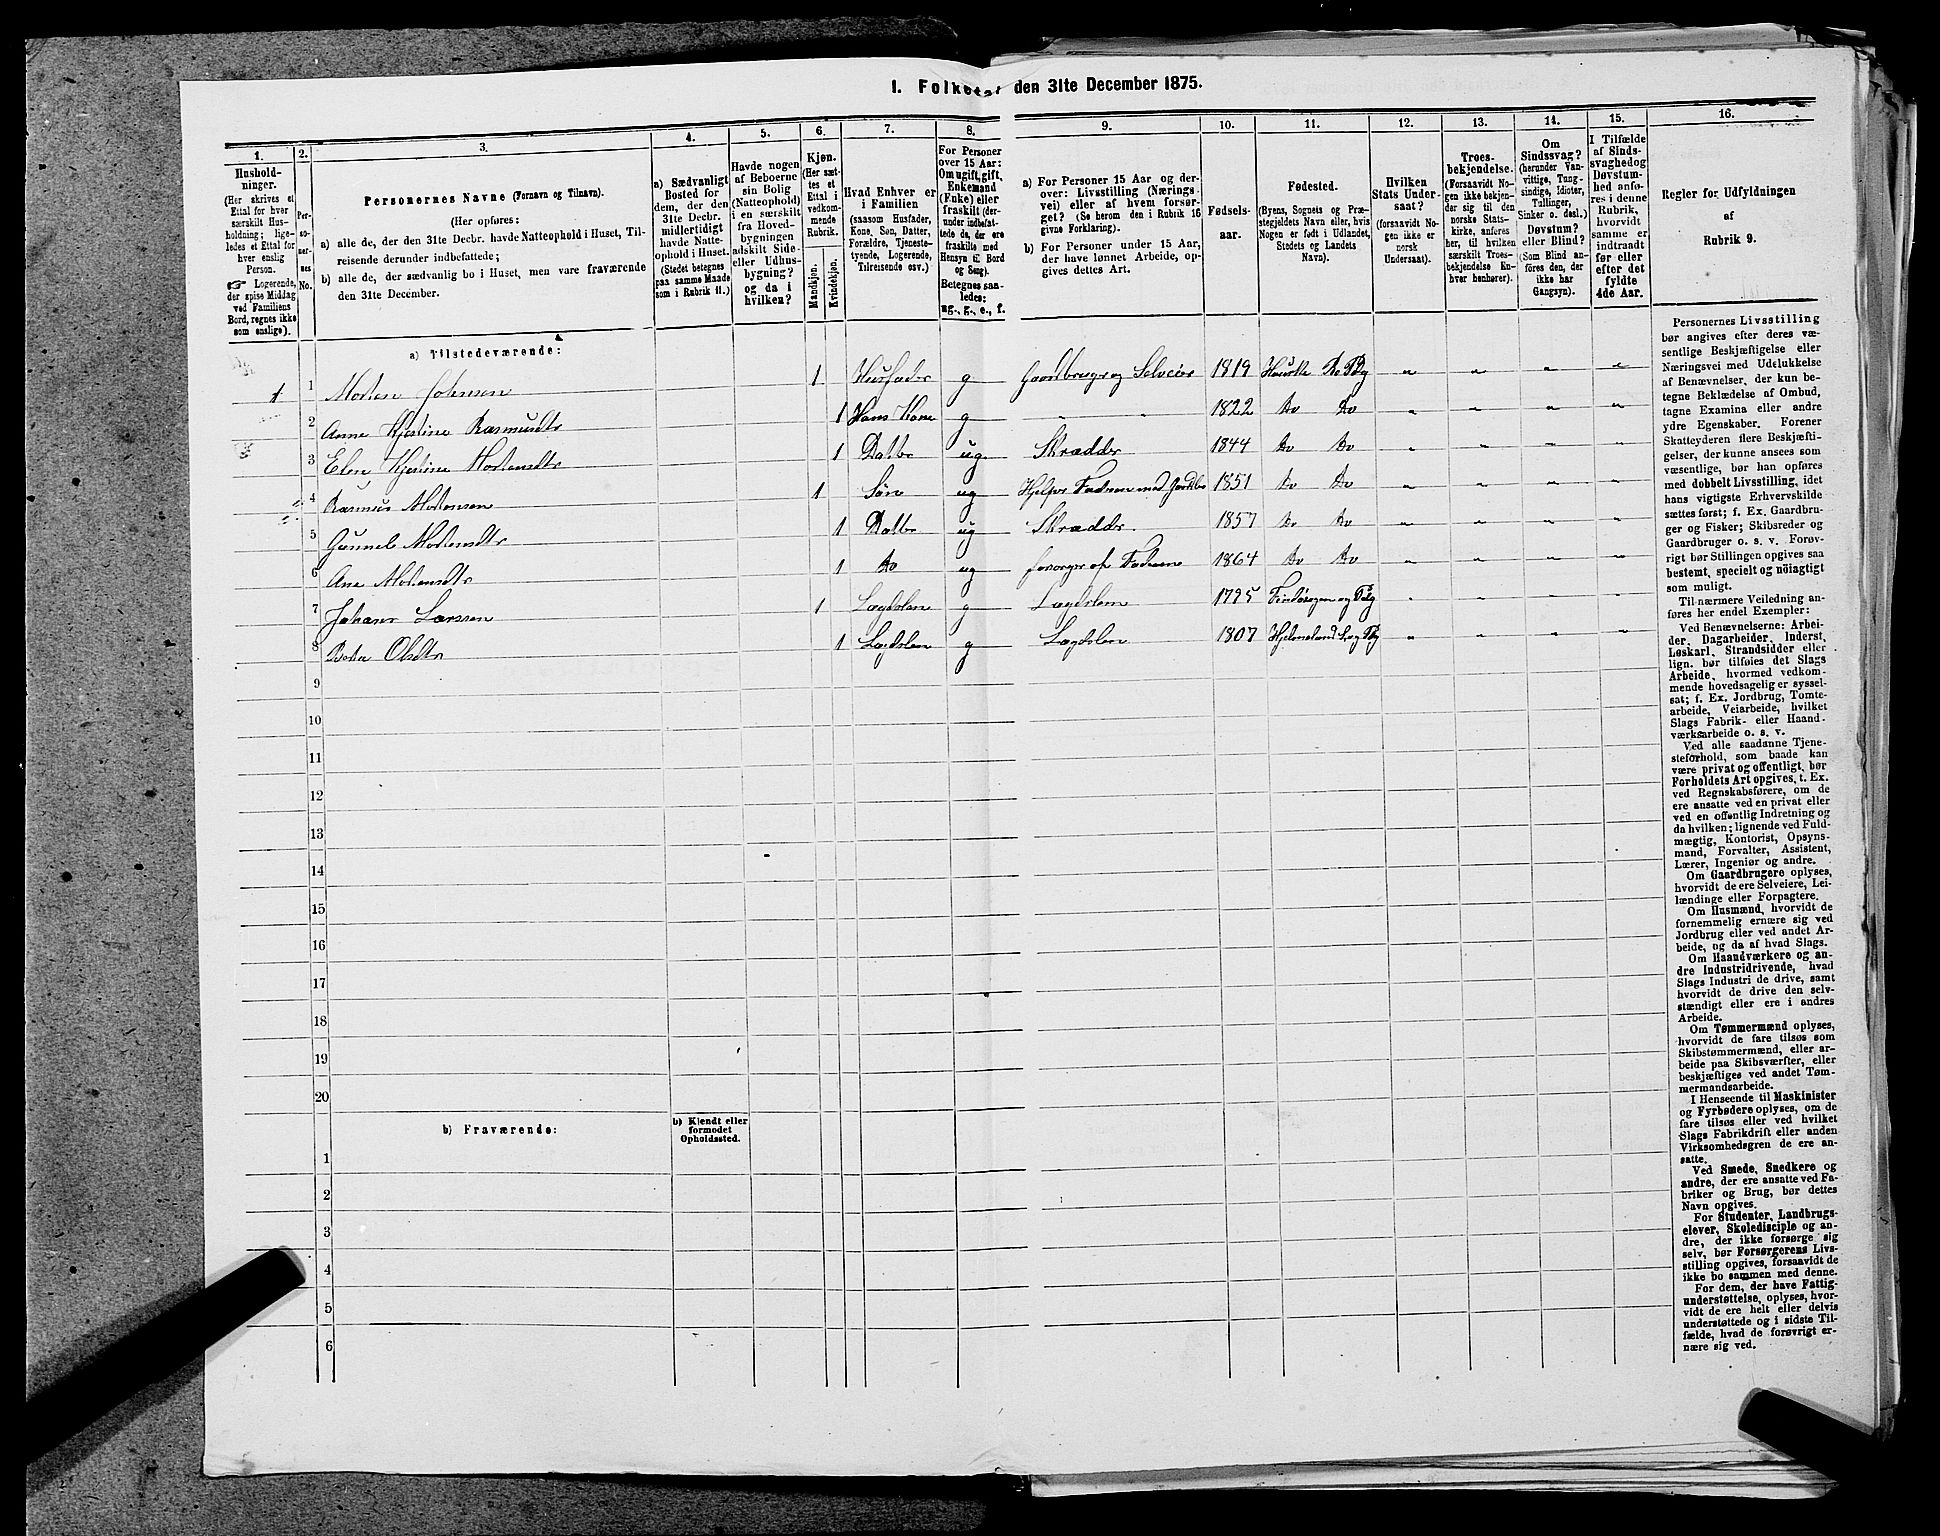 1. Folketal den 31te December 1875.
1. 2. 3. 4. 5. 6. 7. 8. 9. 10. 11. 12. 13. 14. 15. 16.
Hushold-
ninger.
(Her skrives et
Ettal for hver
særskilt Hus-
holdning; lige-
ledes et Ettal for
hver enslig
Person.
☞ Logerende,
der spise Middag
ved Familiens
Bord, regnes ikke
som enslige).
Per-
so-
ner-
nes
No.
Personernes Navne (Fornavn og Tilnavn).
(Her opføres:
a) alle de, der den 31te Decbr. havde Natteophold i Huset, Til-
reisende derunder indbefattede;
b) alle de, der sædvanlig bo i Huset, men vare fraværende
den 31te December.
a) Sædvanligt
Bosted for
dem, der den
31te Decbr.
midlertidigt
havde Natte-
ophold i Huset.
(Stedet betegnes
paa samme Maade
som i Rubrik 11.)
Havde nogen
af Beboerne
sin Bolig
(Natteophold)
i en særskilt
fra Hoved-
bygningen
adskilt Side-
eller Udhus-
bygning?
og da i
hvilken?
Kjøn.
(Her sæt-
tes et
Ettal i
vedkom-
mende
Rubrik.
Mandkjøn.
Kvindekjøn.
Hvad Enhver er
i Familien
(saasom Husfader,
Kone, Søn, Datter,
Forældre, Tjeneste-
tyende, Logerende,
Tilreisende osv.)
For Personer
over 15 Aar:
Om ugift, gift,
Enkemand
(Enke) eller
fraskilt (der-
under indbefat-
tede de, der ere
fraskilte med
Hensyn til Bord
og Seng).
Betegnes saa-
ledes:
ug., g., e., f.
a) For Personer 15 Aar og der-
over: Livsstilling (Nærings-
vei) eller af hvem forsør-
get? (Se herom den i Rubrik 16
givne Forklaring).
b) For Personer under 15 Aar,
der have lønnet Arbeide, op-
gives dettes Art.
Fødsels-
aar.
Fødested.
(Byens, Sognets og Præ-
stegjeldets Navn eller, hvis
Nogen er født i Udlandet,
Stedets og Landets
Navn).
Hvilken
Stats Under-
saat?
(forsaavidt No-
gen ikke er
norsk
Undersaat).
Troes-
bekjendelse.
(Forsaavidt No-
gen ikke bekjen-
der sig til den
norske Stats-
kirke, anføres
her, til hvilken
særskilt Troes-
bekjendelse En-
hver henhører).
Om
Sindssvag?
(herunder Van-
vittige, Tung-
sindige, Idioter,
Tullinger,
Sinker o. desl.)
Døvstum?
eller Blind?
(Som Blind an-
føres den, der
ikke har
Gangsyn).
I Tilfælde
af Sinds-
svaghed og
Døvstum-
hed anfø-
res i denne
Rubrik,
hvorvidt
samme er
indtraadt
før eller
efter det
fyldte
4de Aar.
Regler for Udfyldningen
af
Rubrik 9.
a) Tilstedeværende:
1 1 Morten Johnsen 1 Husfader g Gaardbruger og Selveier 1819 Hauske Do Pg " " " "
2 Anne Kjestine Rasmusdtr 1 Hans Kone g " " 1822 Do Do " " " "
3 Elen Kjestine Mortensdtr 1 Datter ug Skrædder 1844 Do Do " " " "
4 Rasmus Mortensen 1 Søn ug Hjelper Faderen med 1851 Do Do " " " "
5 Gunnel Mortensdtr 1 Datter ug Skrædder 1857 Do Do " " " "
6 Ane Mortensdtr 1 Do ug forsørges af Faderen 1864 Do Do " " " "
7 Johans Larssen 1 Lægdslem g Lægdslem 1795 Findø Sogn og Pg " " " "
8 Berta Olsdtr 1 Lægdslem g Lægdslem 1807 Hjelmeland S og Pg " " " "
9
10
11
12
13
14
15
16
17
18
19
20
b) Fraværende:
b) Kjendt eller
formodet
Opholdssted.
1
2
3
4
5
6
Personernes Livsstilling
bør angives efter deres væ-
sentlige Beskjæftigelse eller
Næringsvei med Udelukkelse
af Benævnelser, der kun be-
tegne Beklædelse af Ombud,
tagne Examina eller andre
ydre Egenskaber. Forener
Skatteyderen flere Beskjæfti-
gelser, der kunne ansees som
væsentlige, bør han opføres
med dobbelt Livsstilling, idet
hans vigtigste Erhvervskilde
sættes først; f. Ex. Gaardbru-
ger og Fisker; Skibsreder og
Gaardbruger o. s. v. Forøv-
rigt bør Stillingen opgives saa
bestemt, specielt og nöiagtigt
som muligt.
Til nærmere Veiledning an-
føres her endel Exempler:
Ved Benævnelserne: Arbei-
der, Dagarbeider, Inderst,
Løskarl, Strandsidder eller
lign. bør tilføies det Slags
Arbeide, hvormed vedkom-
mende hovedsagelig er syssel-
sat; f. Ex. Jordbrug, Tomte-
arbeide, Veiarbeide, hvilket
Slags Fabrik- eller Haand-
værksarbeide o. s. v.
Ved alle saadanne Tjene-
steforhold, som baade kan
være privat og offentligt, bør
Forholdets Art opgives, t. Ex.
ved Regnskabsførere, om de
ere ansatte ved en privat eller
ved en offentlig Indretning og
da hvilken; lignende ved Fuld-
mægtig, Kontorist, Opsyns-
mand, Forvalter, Assistent,
Lærer, Ingeniør og andre.
Om Gaardbrugere oplyses,
hvorvidt de ere Selveiere, Lei-
lændinge eller Forpagtere.
Om Husmænd, hvorvidt de
fornemmelig ernære sig ved
Jordbrug eller ved andet Ar-
beide, og da af hvad Slags.
Om Haandværkere og an-
dre Industridrivende, hvad
Slags Industri de drive, samt
hvorvidt de drive den selv-
stændigt eller ere i andres
Arbeide.
Om Tømmermænd oplyses,
hvorvidt de fare tilsøs som
Skibstømmermænd, eller ar-
beide paa Skibsværfter, eller
beskjæftiges ved andet Tøm-
mermandsarbeide.
I Henseende til Maskinister
og Fyrbødere oplyses, om de
fare tilsøs eller ved hvilket
Slags Fabrikdrift eller anden
Virksomhedsgren de ere an-
satte.
Ved Smede, Snedkere og
andre, der ere ansatte ved Fa-
briker og Brug, bør dettes
Navn opgives.
For Studenter, Landbrugs-
elever, Skoledisciple og an-
dre, der ikke forsørge sig
selv, bør Forsørgerens Livs-
stilling opgives, forsaavidt de
ikke bo sammen med denne.
For dem, der have Fattig-
understøttelse, oplyses, hvor-
vidt de ere helt eller delvis
understøttede og i sidste Til-
fælde, hvad de forøvrigt er-
nære sig ved.